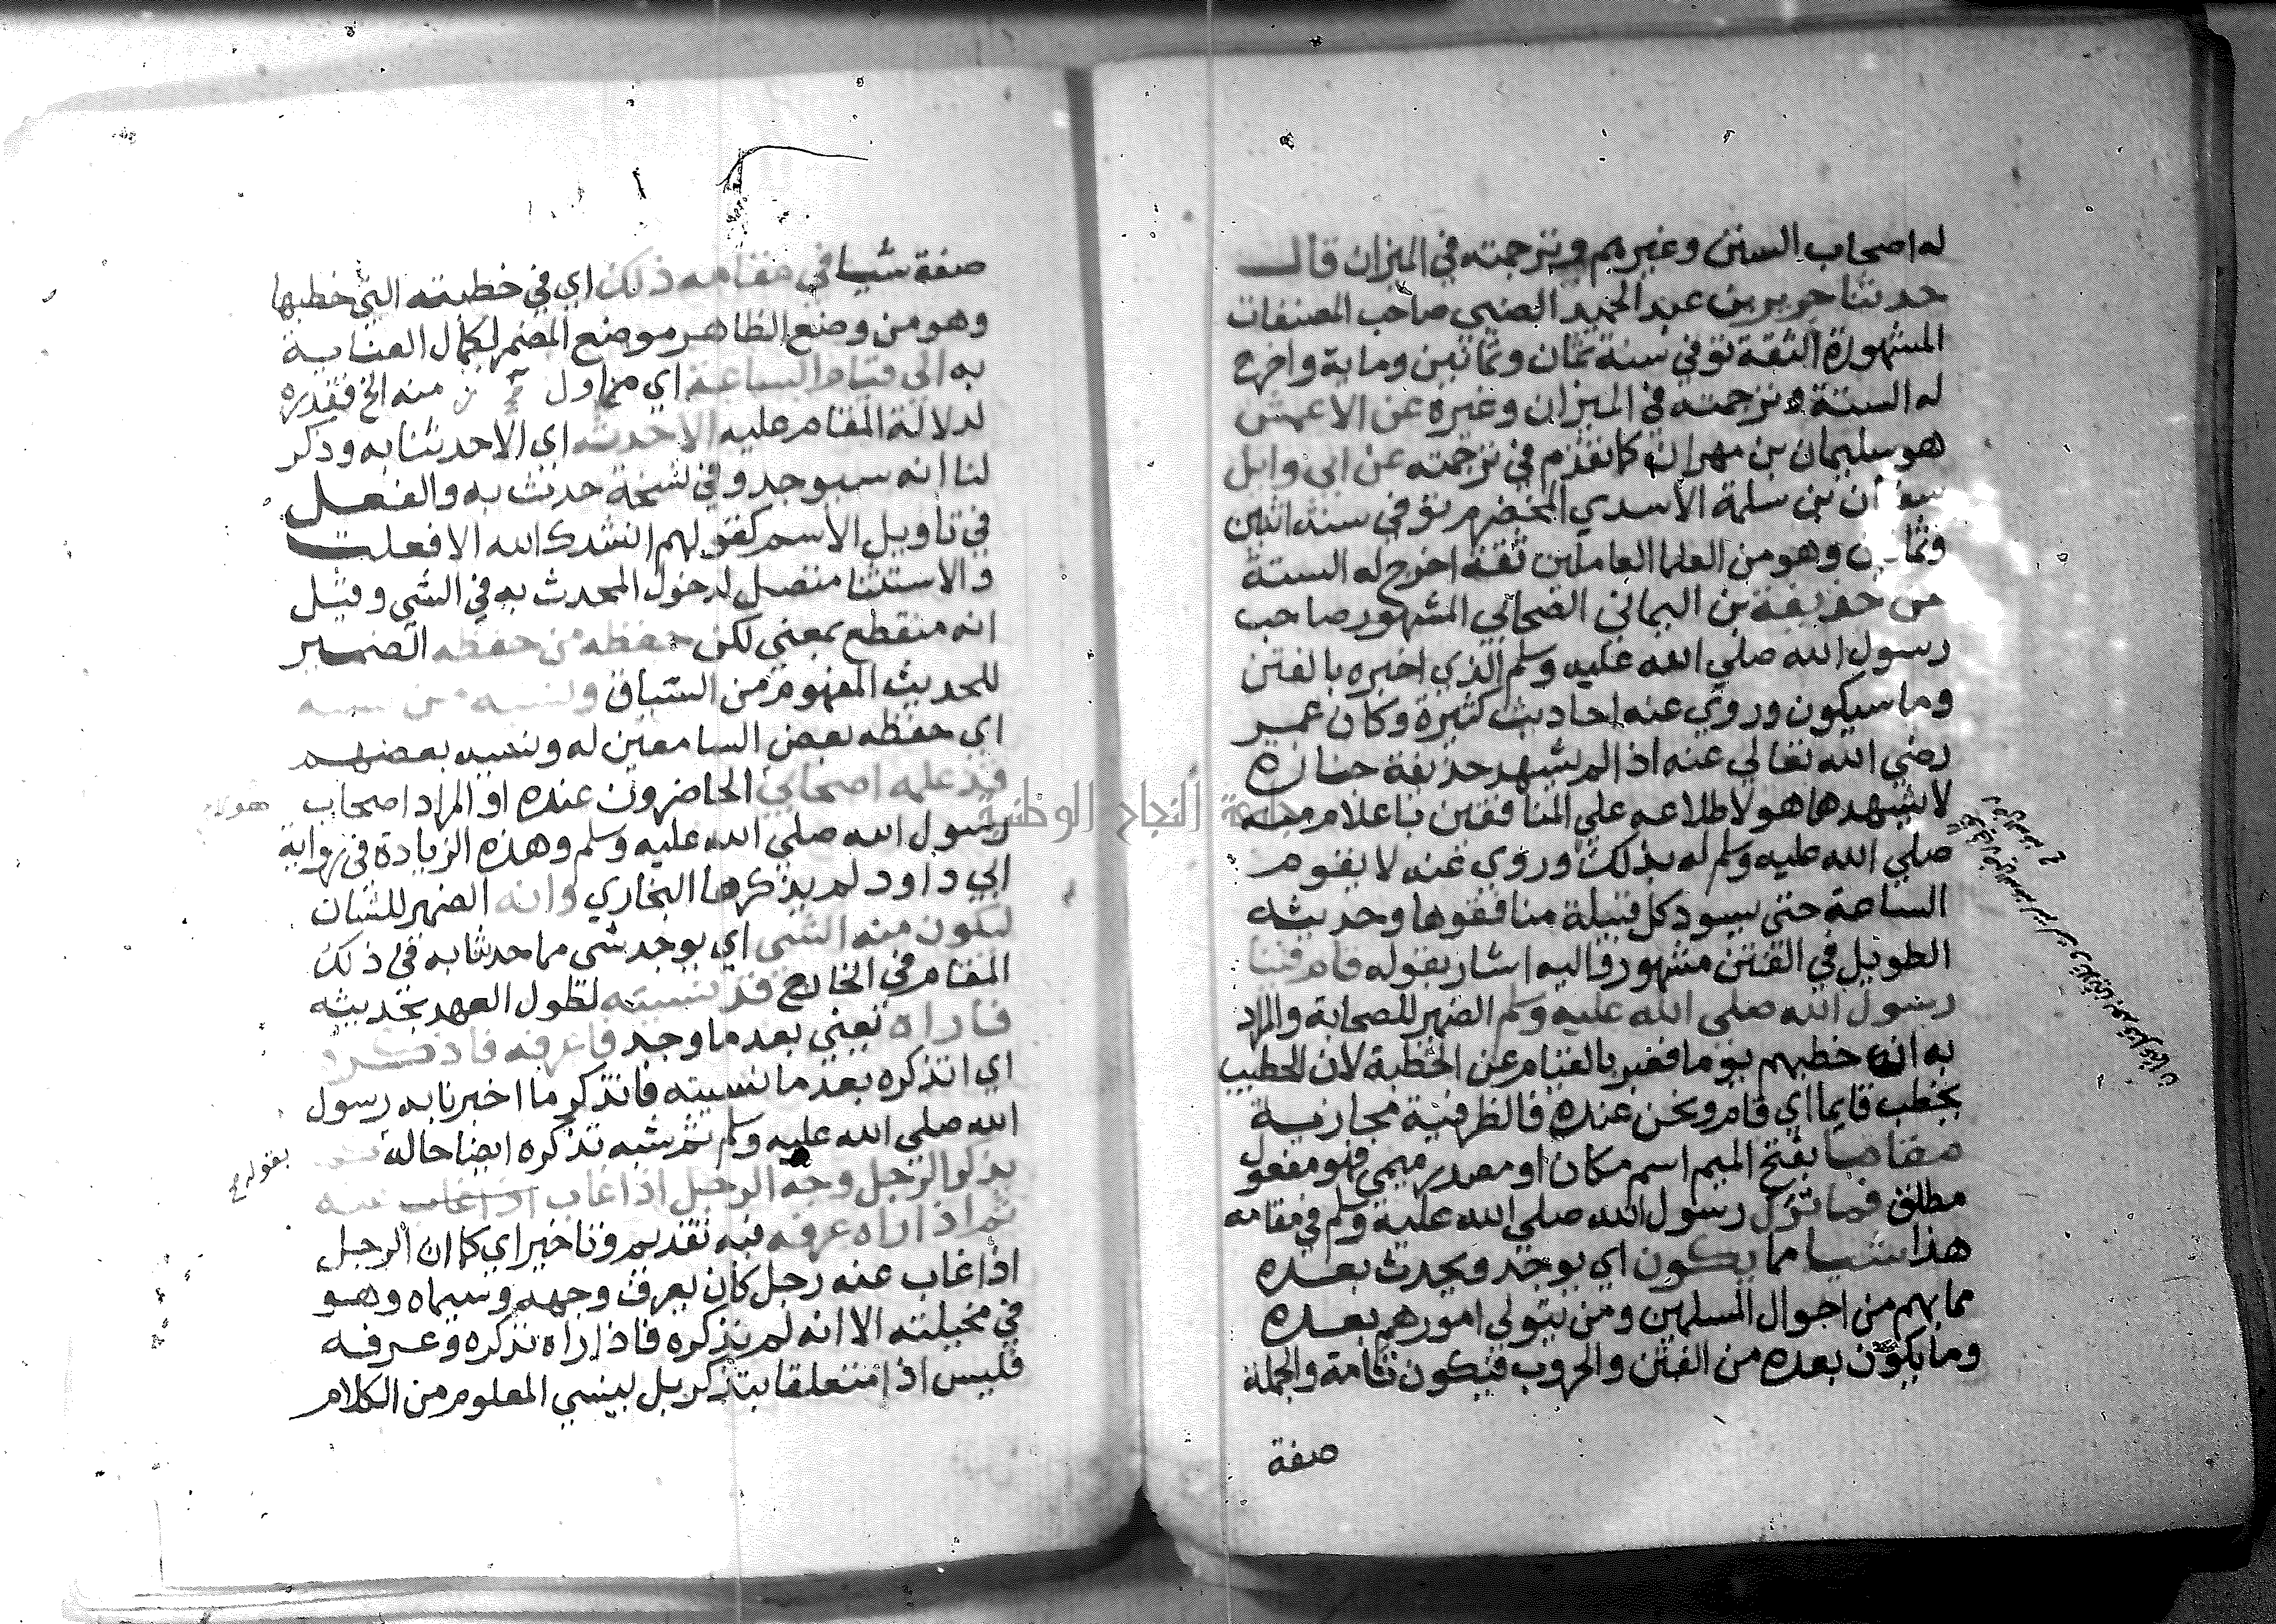 له اصحاب السنن وغيرهم وترجمته في الميزان قال
حدثنا جرير بن عبد الحميد الضبي صاحب المصنفات
المشهورة الثقة توفي سنة ثمان وثمانين وماية واخرج
له الستة وترجمته في الميزان وغيره عن الاعمش
هو سليمان بن مهران كما تقدم في ترجمته عن ابي وايل
بن سلمة الاسدي المخضرم توفي سنة اثنين
وهو من العلما العاملين ثقة اخرج له الستة
حذيفة بن اليماني الصحابي المشهور صاحب
رسول الله صلي الله عليه وسلم الذي اخبره بالفتن
وما سيكون وروي عنه احاديث كثيرة وكان عمر
رضي الله تعالي عنه اذا لم يشهد حذيفة جنازة
لا يشهدها هو لاطلاعه علي المنافقين باعلام منه
صلي الله عليه وسلم له بذلك وروي عنه لا يقوم
الساعة حتى يسود كل قبيلة منافقوها وحديثه
الطويل في الفتن مشهور واليه اشار بقوله قام فينا
رسول الله صلى الله عليه وسلم الضمير للصحابة والمراد
به انه خطبهم يوما فعبر بالقيام عن الخطبة لان الخطيب
يخطب قايما اي قام ونحن عنده فالظرفية مجازية
مقاما بفتح الميم اسم مكان او مصدر ميمي فهو مفعول
مطلق فما ترك رسول الله صلي الله عليه وسلم في مقامه
هذا شيا مما يكون اي يوجد ويحدث بعده
مما يهم من احوال المسلمين ومن يتولى امورهم بعده
وما يكون بعده من الفتن والحروب فيكون تامة والجملة
صفة
صفة شيا في مقامه ذلك اي في خطبته التي خطبها
وهو من وضع الظاهر موضع المضمر لكمال العناية
به الي قيام الساعة اي مما ول منه الخ فقدره
لدلالة المقام عليه الا حدثه اي الا حدثنا به وذكر
لنا انه سيوجد وفي نسخة حدث به والفعل
في تاويل الاسم كقولهم انشدك الله الا فعلت
والاستثنا متصل لدخول المحدث به في الشي وقيل
انه منقطع بمعني لكن حفظه من حفظه الضمير
للحديث المفهوم من السياق ونسيه من نسيه
اي حفظه بعض السامعين له ونسيه بعضهم
قد علمه اصحابي الحاضرون عنده او المراد اصحاب
هولاء
رسول الله صلي الله عليه وسلم وهذه الزيادة في رواية
ابي داود لم يذكرها البخاري وانه الضمير للشان
ليكون منه الشي اي يوجد شي مما حدثنا به في ذلك
المقام في الخارج قد نسيته لطول العهد بحديثه
فاراه يعني بعد ما وجد فاعرفه فاذكره
اي اتذكره بعد ما نسيته فاتذكر ما اخبرنا به رسول
الله صلي الله عليه وسلم ثم شبه تذكره ايضا حالة
بقوله
يذكر الرجل وجه الرجل اذا غاب اذا غاب عنه
ثم اذا راه عرفه فيه تقديم وتاخير اي كما ان الرجل
اذا غاب عنه رجل كان يعرف وجهه وسيماه وهو
في مخيلته الا انه لم يتذكره فاذا راه تذكره وعرفه
فليس اذا متعلقا بتذكر بل بينسي المعلوم من الكلام
جامعة النجاح الوطنية